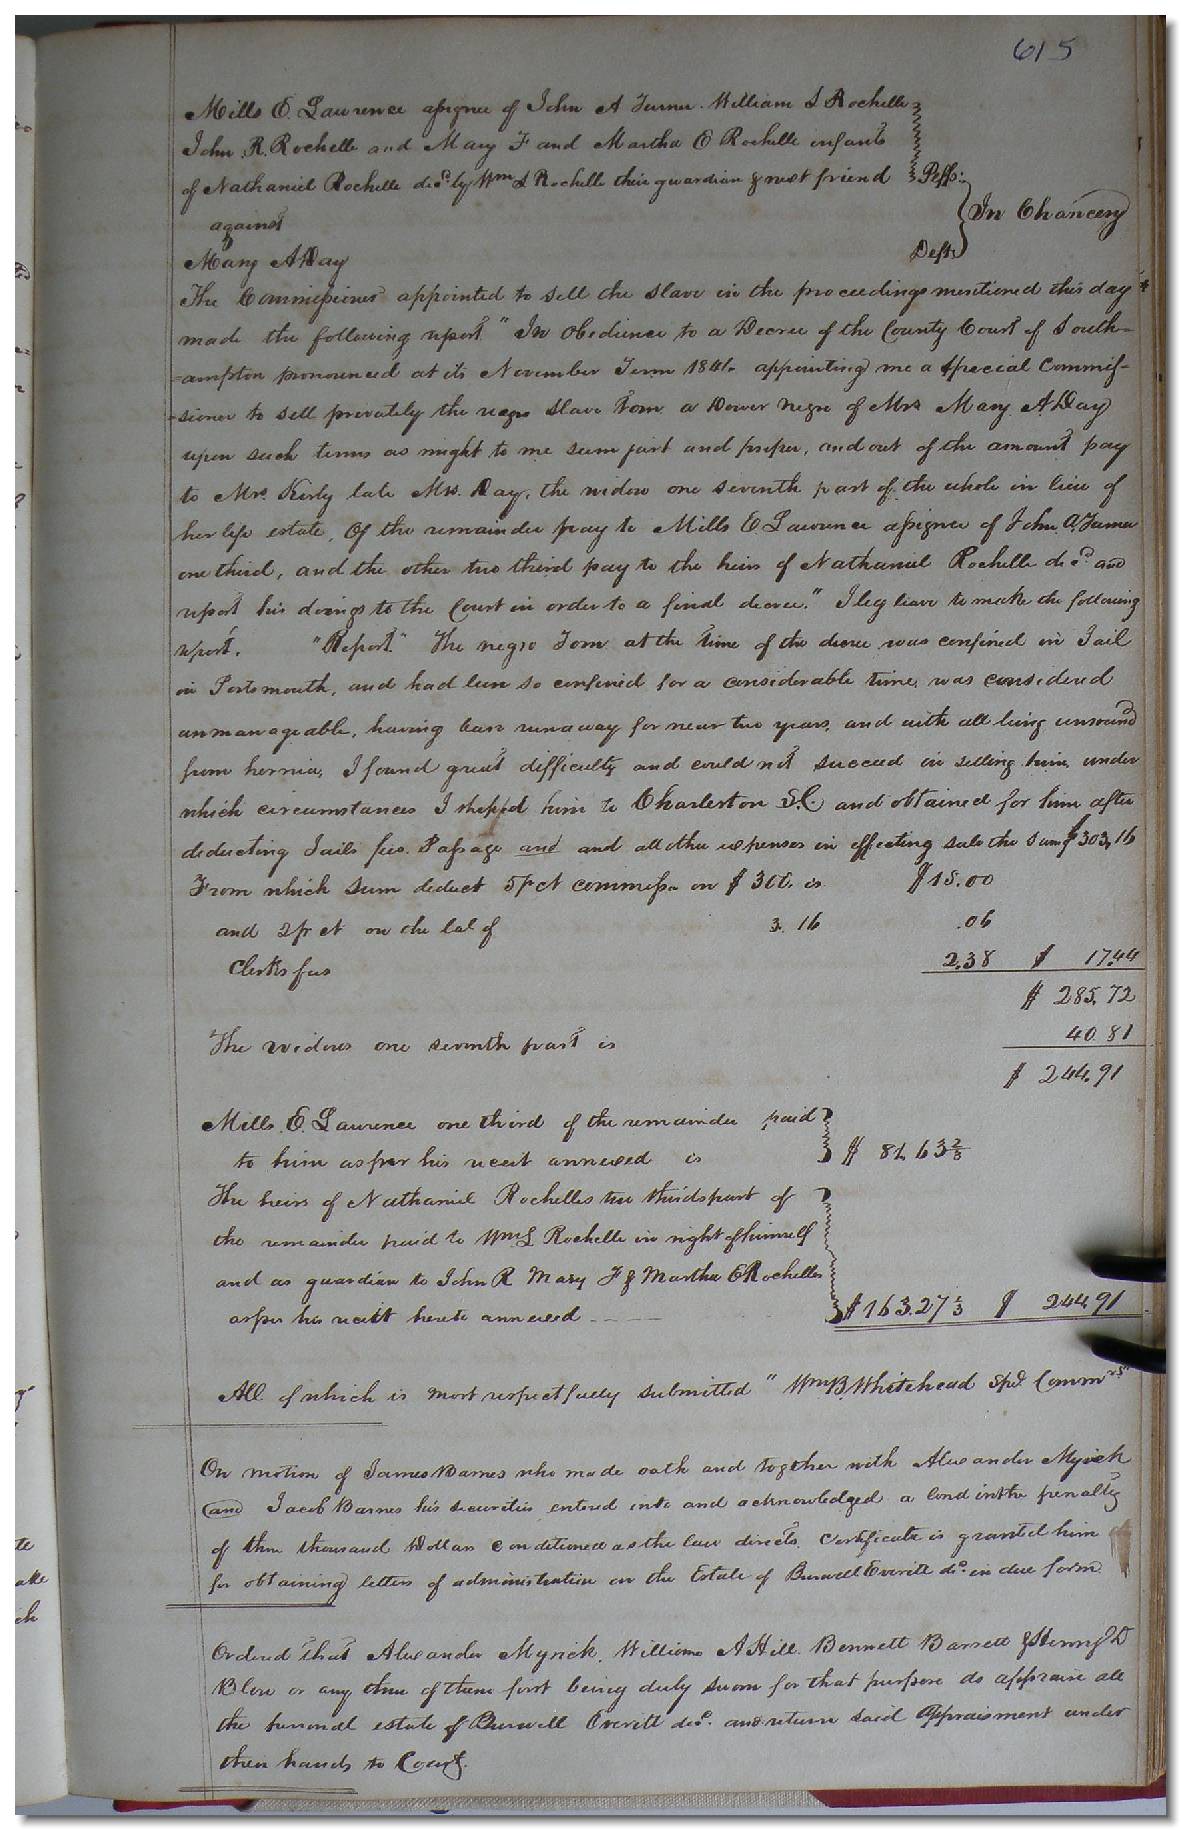 615
Mills E. Lawrence assignee of John A Turner. William S Rochelle
John R. Rochelle and Mary F and Martha E Rochelle infants
of Nathaniel Rochelle decd. by Wm S Rochelle their guardian & next friend Plffs.
against In Chancery
Defts
Mary A Day
The Commissioner appointed to sell the slave in the proceedings mentioned this day
made the following report "In Obedience to a Decree of the County Court of South=
=ampton pronounced at its November Term appointing me a Special Commis-
-sioner to sell privately the negro slave Tom a Dower Negro of Mrs Mary A. Day
upon such terms as might to me seem just and proper, and out of the amount pay
to Mrs. late Mrs. Day, the widow one seventh part of the whole in lieu of
her life estate, Of the remainder pay to Mills E Lawrence assignee of John A. Turner
one third, and the other two third pay to the heirs of Nathaniel Rochelle decd. and
report his doings to the Court in order to a final decree." I beg leave to make the following
report. "Report" The negro Tom at the time of the decree was confined in Jail
in Portsmouth, and had been so confined for a considerable time, was considered
unmanageable, having been runaway for near two years, and with all being unsound
from hernia, I found great difficulty and could not succeed in selling him, under
which circumstances I shipped him to Charleston S.C. and obtained for him after
deducting Jails fees. Passage and and all other expenses in effecting sale the sum of $303,16
From which sum deduct 5 pr ct commissn on $300. is $15.00
and 2 pr ct on the bal of 3.16 .06
Clerks fees 2.38 $ 17.44
$ 285.72
The widows one seventh part is 40.81
$ 244.91
Mills. E. Lawrence one third of the remainder paid
to him as per his receit annexed is $ 81.63 2/3
The heirs of Nathaniel Rochelles two thirds part of
the remainder paid to Wm S Rochelle in right of himself
and as guardian to John R Mary F & Martha E Rochelles
as per his receitt hereto annexed $163.27 1/3 $ 244.91
All of which is most respectfully submitted " Wm B. Whitehead Spd. Commrs"
On motion of James Barnes who made oath and together with Alexander Myrick
and Jacob Barnes his securities entered into and acknowledged a bond in the penalty
of three thousand Dollars conditioned as the law directs. Certificate is granted him
for obtaining letters of administration on the Estate of Burwell Everitt decd. in due form.
Ordered that Alexander Myrick, William A Hill. Bennett Barrett & Henry D
Blow or any three of them first being duly sworn for that purpose do appraise all
the personal estate of Burwell Everitt decd. and return said Appraisment under
their hands to Court.